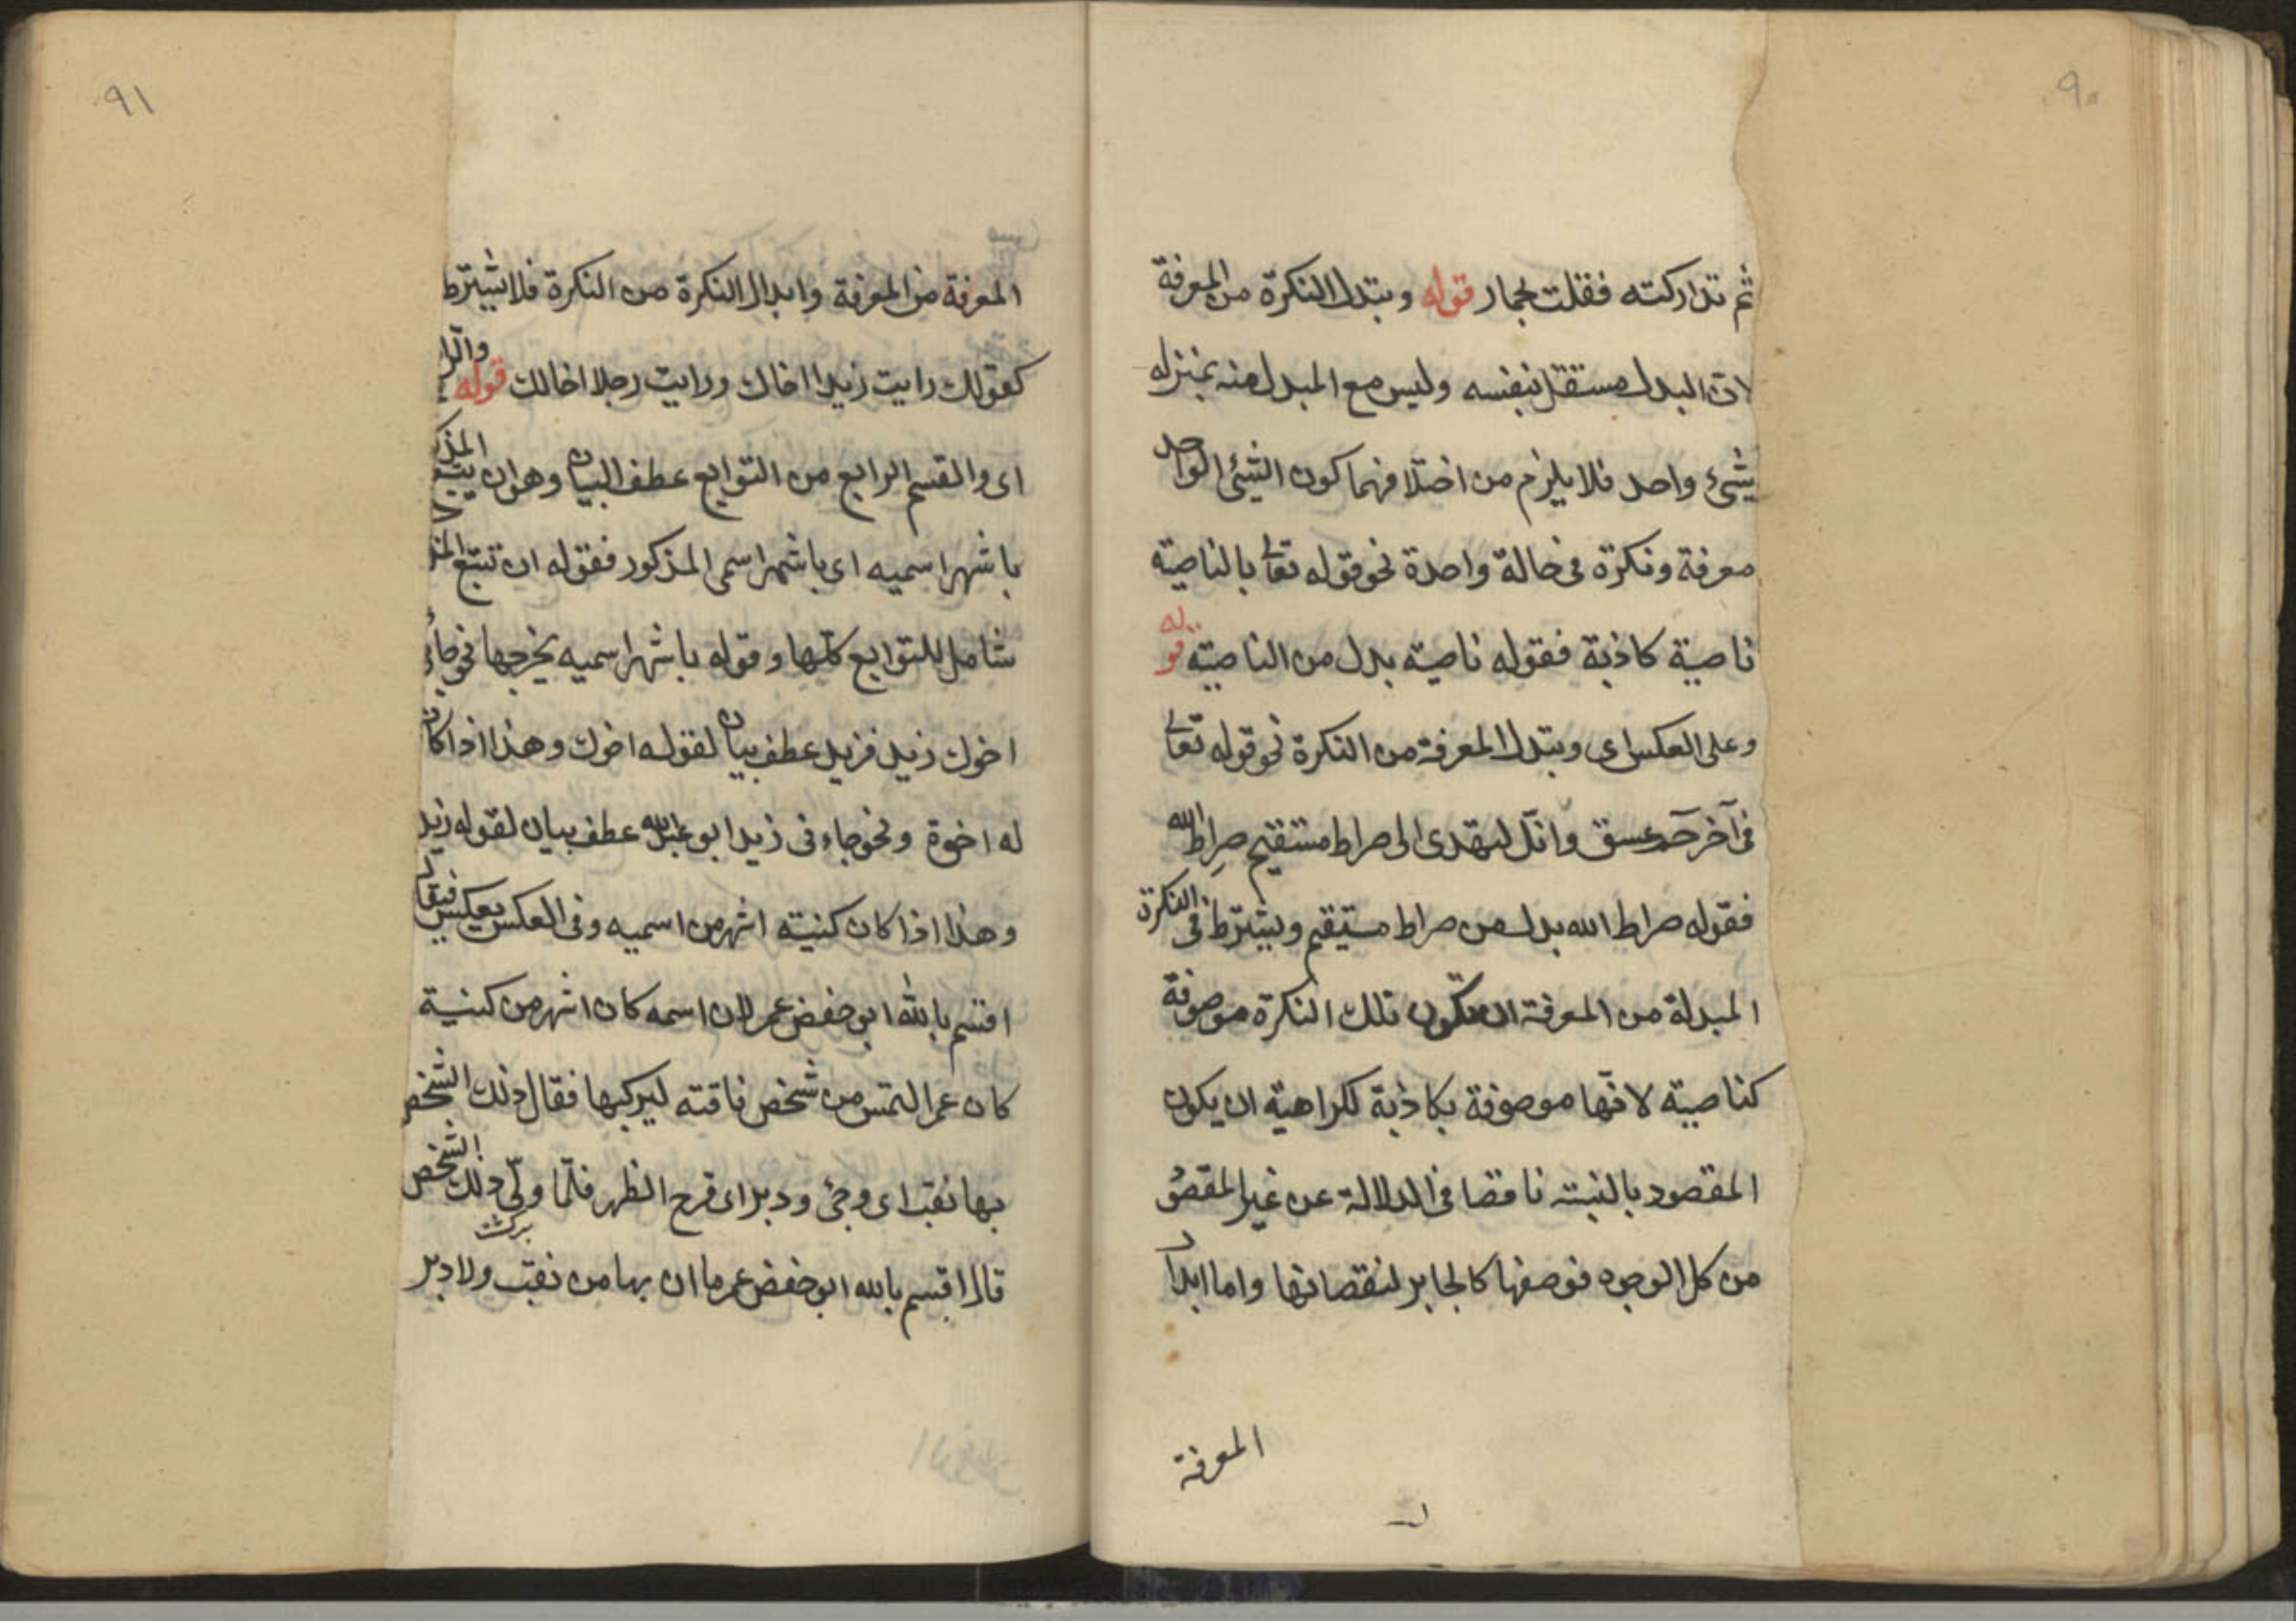 ٩٠
ثم تداركته فقلت بحمار قوله وتبدل النكرة من المعرفة
لان البدل مستقل بنفسه وليس مع المبدل منه بمنزله
شئ واحد فلا يلزم من اختلافهما كون الشئ الواحد
معرفة ونكرة فى حالة واحدة نحو قوله تعالى بالناصية
ناصية كاذبة فقوله ناصية بدل من الناصية قوله
وعلى العكس اى وتبدل المعرفة من النكرة نحو قوله تعالى
فى آخر حمعسق وانك لتهدى الى صراط مستقيم صراط الله
فقوله صراط الله بدل من صراط مستيقم ويشترط فى النكرة
المبدلة من المعرفة ان تكون تلك النكرة موصوفة
كناصية لانها موصوفة بكاذبة لكراهية ان يكون
المقصود بالنبسته ناقصا فى الدلالة عن غير المقصود
من كل الوجوه فوصفها كالجابر لنقصانها واما ابدال
المعرفة
٩١
المعرفة من المعرفة وابدال النكرة من النكرة فلا يشترط
كقولك رايت زيدا اخاك ورايت رجلا اخا لك قوله
اى والقسم الرابع من التوابع عطف البيان وهو ان يتبع
باشهر اسميه اى باشهر اسمى المذكور فقوله ان تتبع
شامل للتوابع كلها وقوله باشهر اسميه يخرجها نحو جائ
اخوك زيد فزيد عطف بيان لقوله اخوك وهذا اذا كان
له اخوة ونحو جاءنى زيد ابو عبدالله عطف بيان لقوله زيد
وهذا اذا كان كنيته اشهر من اسميه وفى العكس يعكس فيقال
اقسم بالله ابو حفض عمر لان اسمه كان اشهر من كنية
كان عمر التمس من شخص ناقته ليركبها فقال ذلك الشخص
بها نقب اى وجئ ودبر اى قرح الظهر فلما ولى ذلك الشخص
قال اقسم بالله ابو حفض عمر ما ان بها من نقب ولا دبر